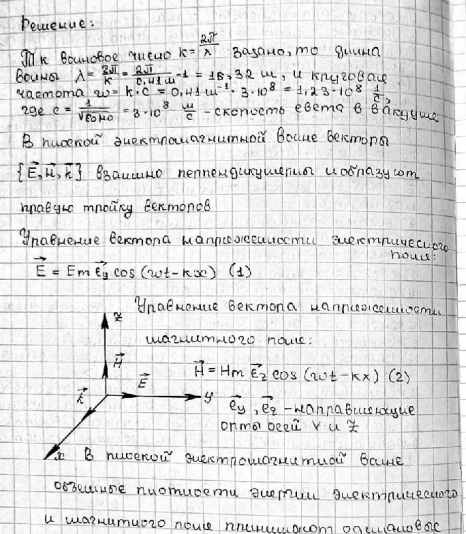 Решение:
Т.к волновое число k = 2π/λ задано, то длина
волны λ = 2π/k = 2π/0,41 м⁻¹ = 15,32 м, и круговая
частота ω = k·c = 0,41 м⁻¹ · 3·10⁸ = 1,23·10⁸ 1/с,
где c = 1/√ε₀μ₀ = 3·10⁸ м/с - скорость света в вакууме
В плоской электромагнитной волне векторы
{E⃗, H⃗, k⃗} взаимно перпендикулярны и образуют
правую тройку векторов
Уравнение вектора напряженности электрического
поля:
E⃗ = Em e⃗y cos (ωt - kx) (1)
Уравнение вектора напряженности
магнитного поля:
H⃗ = Hm e⃗z cos (ωt - kx) (2)
e⃗y, e⃗z - направляющие
орты осей Y и Z
z
H⃗
k⃗ E⃗
y
x
В плоской электромагнитной волне
объемные плотности энергии электрического
и магнитного поля принимают одинаковые